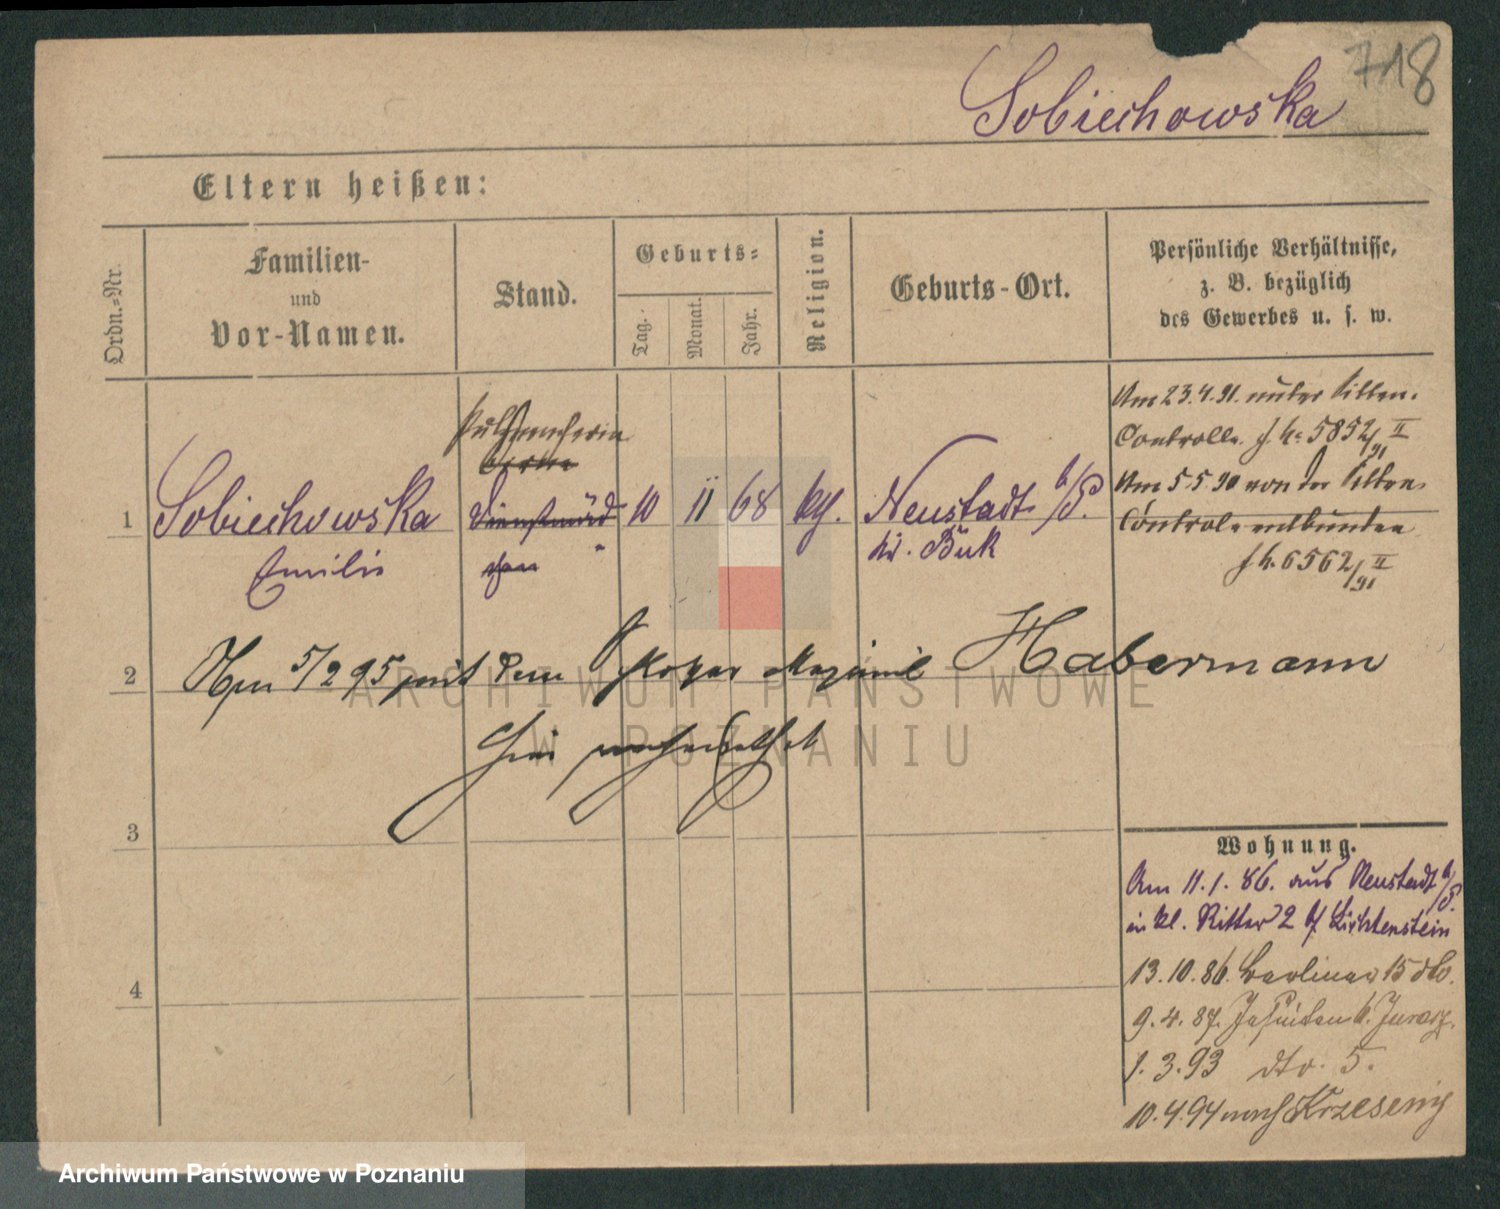 718
Sobiechowska
Eltern heißen:
Ordn.-Nr.
Familien-
und
Vor-Namen.
Stand.
Geburts-
Tag.
Monat.
Jahr.
Religion.
Geburts-Ort.
Persönliche Verhältnisse,
z. B. bezüglich
des Gewerbes u. s. w.
1
Sobiechowska
Emilie
Dienstmäd
chen
10
11
68
kth.
Neustadt b/P.
Kr. Buk
Am 23.4.91. unter Sitten.
Controlle. J. No 5852/91 II
Am 5 5 91 von der Sitten
Controle entbunden
J. No. 6562/91 II
2
Am 5/2 95 mit dem Maximil Habermann
hier verheirathet
3
4
Wohnung.
Am 11.1.86. aus Neustadt b/P.
in kl. Ritter 2 b/ Lichtenstein
13.10.86. Berliner 15 dto.
9.4.87. Jesuiten 6.
1.3.93 dto. 5.
10.4.94 nach Krzesiny
ARCHIWUM PAŃSTWOWE
W POZNANIU
Archiwum Państwowe w Poznaniu